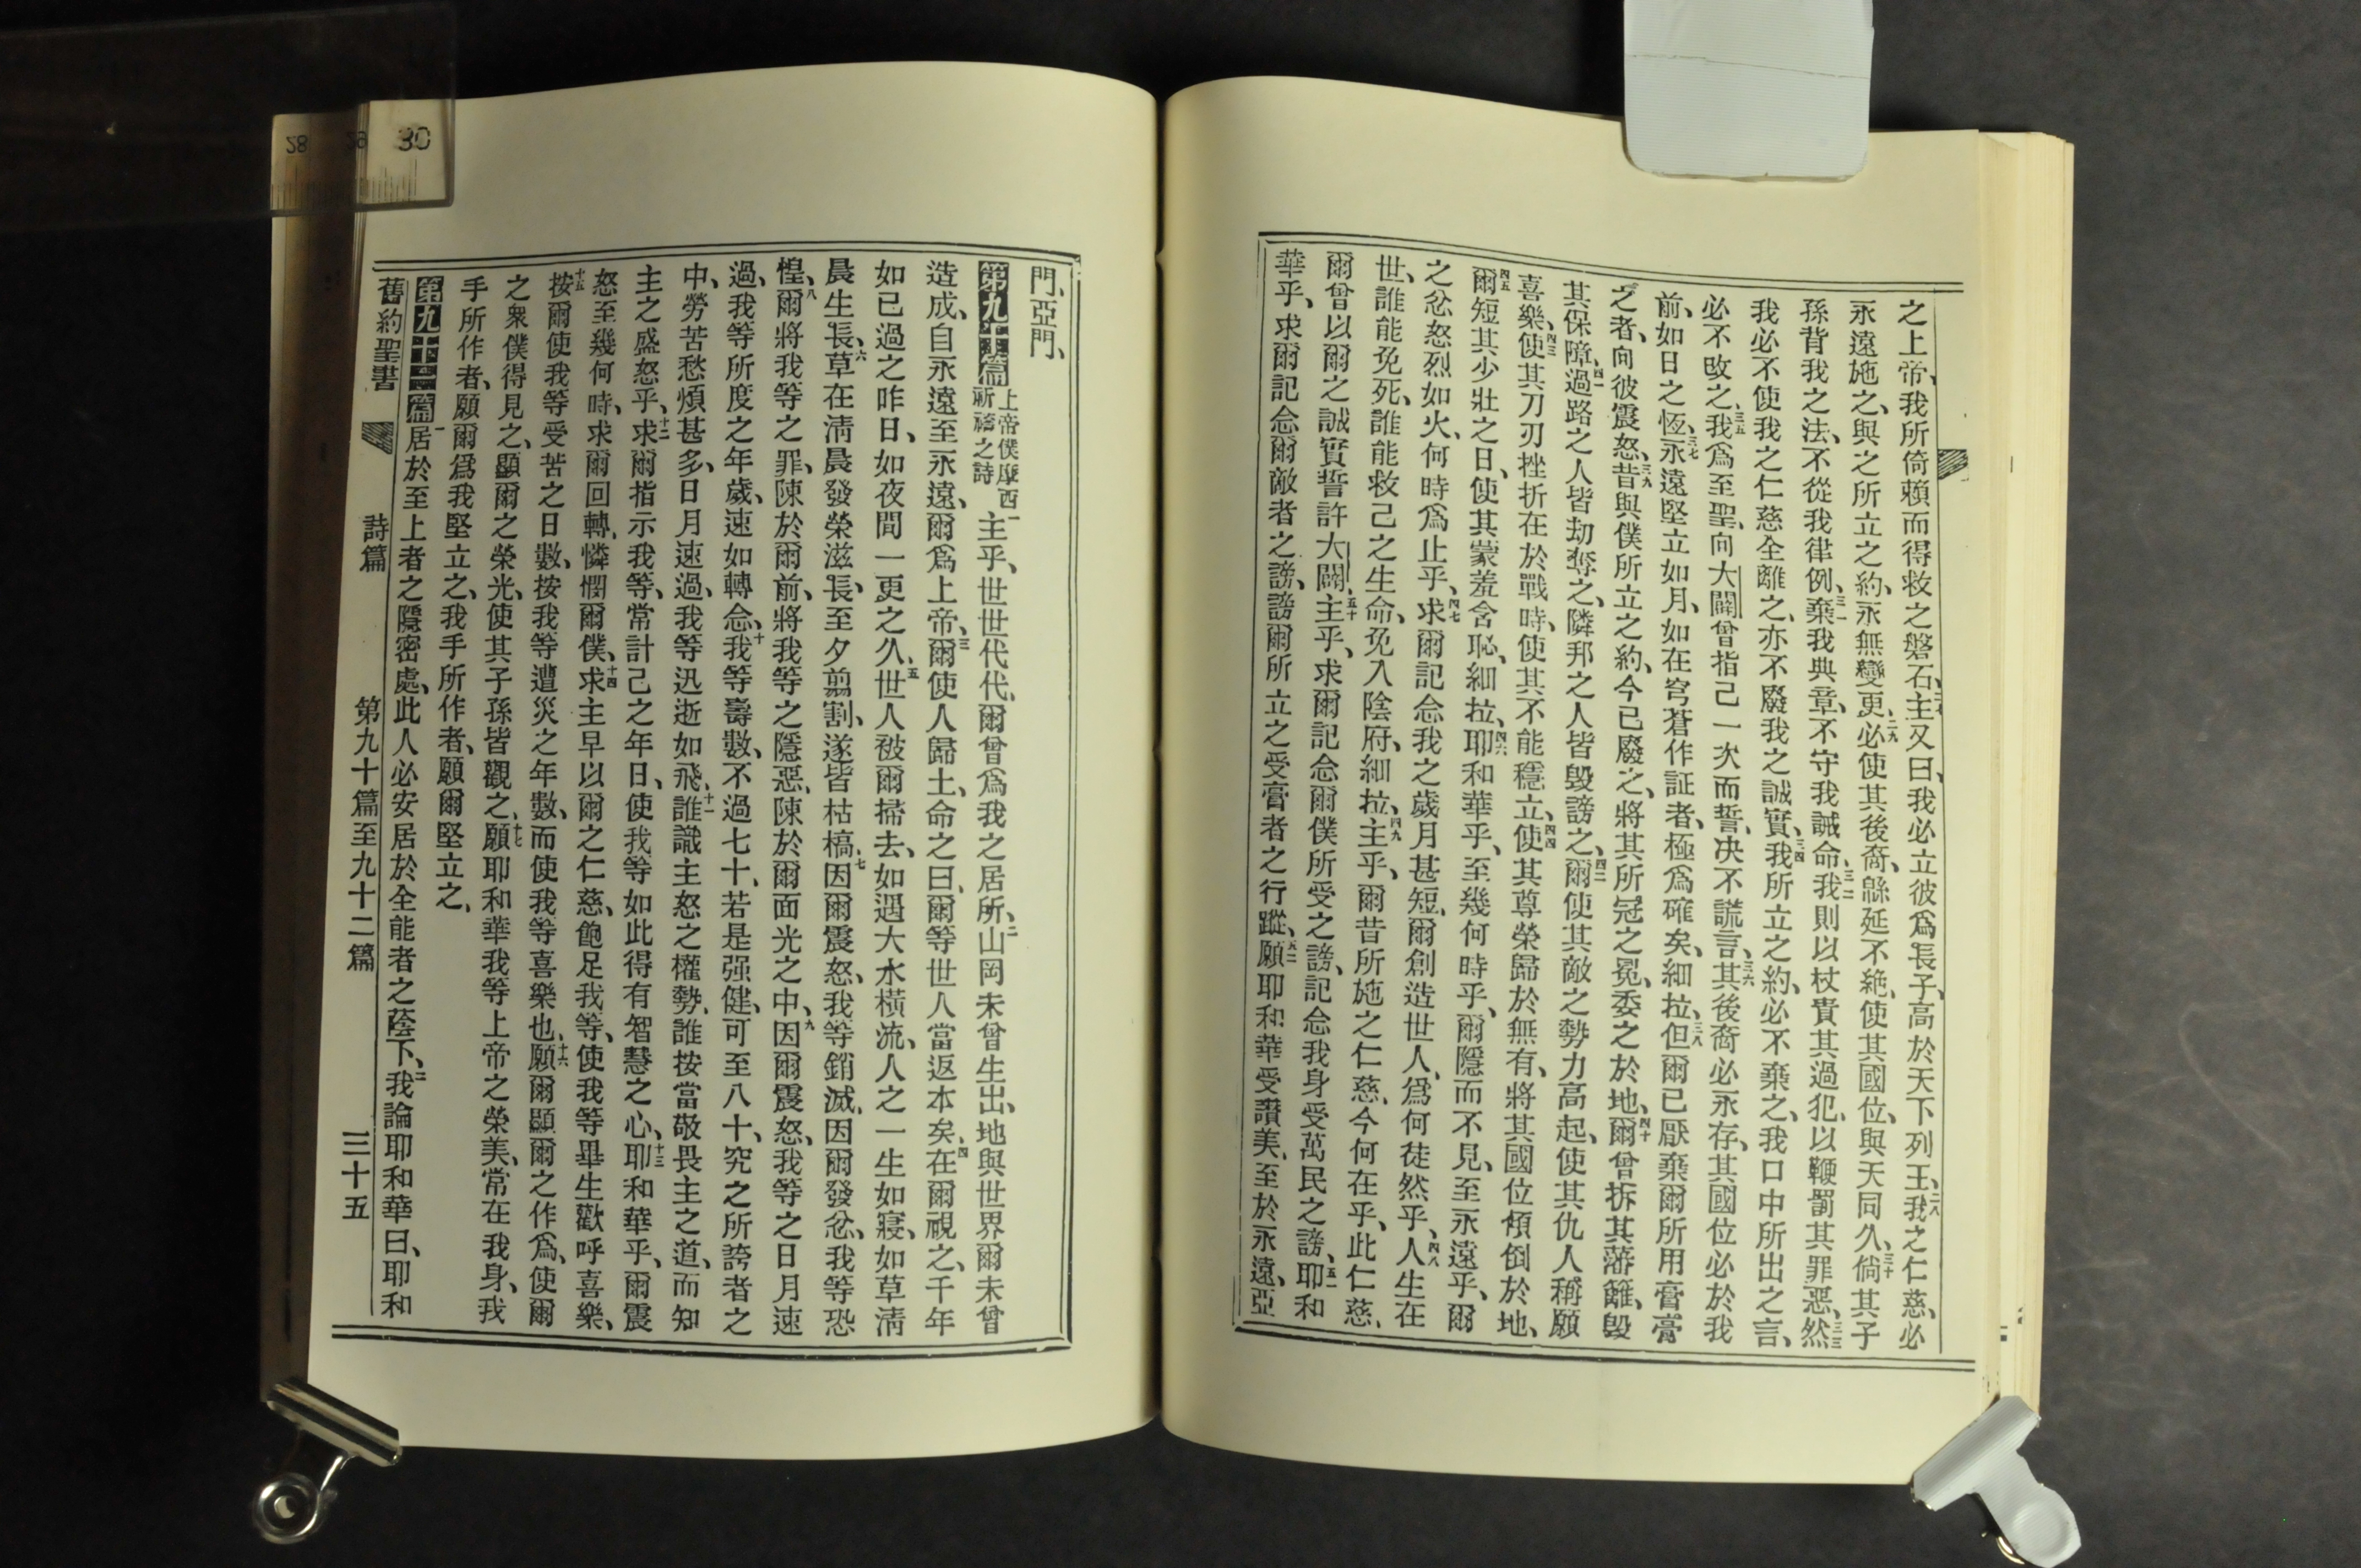 之上帝、我所倚賴而得救之磐石、主又曰、我必立彼爲長子、高於天下列王、二八我之仁慈、必
永遠施之、與之所立之約、永無變更、二九必使其後裔、緜延不絶、使其國位、與天同久、三十倘其子
孫背我之法、不從我律例、三一棄我典章、不守我誡命、三二我則以杖責其過犯、以鞭罰其罪惡、三三然
我必不使我之仁慈全離之、亦不廢我之誠實、三四我所立之約、必不棄之、我口中所出之言、
必不改之、三五我爲至聖、向大闢曾指己一次而誓、决不謊言、三六其後裔必永存、其國位必於我
前、如日之恆、三七永遠堅立如月、如在穹蒼作証者、極爲確矣、細拉、三八但爾已厭棄爾所用膏膏
之者、向彼震怒、三九昔與僕所立之約、今已廢之、將其所冠之冕、委之於地、四十爾曾拆其藩籬、毁
其保障、四一過路之人皆刼奪之、隣邦之人皆毁謗之、四二爾使其敵之勢力高起、使其仇人稱願
喜樂、四三使其刀刃挫折在於戰時、使其不能穩立、四四使其尊榮歸於無有、將其國位傾倒於地、
四五爾短其少壯之日、使其蒙羞含恥、細拉、四六耶和華乎、至幾何時乎、爾隱而不見、至永遠乎、爾
之忿怒烈如火、何時爲止乎、四七求爾記念我之歲月甚短、爾創造世人、爲何徒然乎、四八人生在
世、誰能免死、誰能救己之生命、免入陰府、細拉、四九主乎、爾昔所施之仁慈、今何在乎、此仁慈、
爾曾以爾之誠實誓許大闢、五十主乎、求爾記念爾僕所受之謗、記念我身受萬民之謗、五一耶和
華乎、求爾記念爾敵者之謗、謗爾所立之受膏者之行蹤、五二願耶和華受讃美、至於永遠、亞
門、亞門、
第九十篇 上帝僕摩西祈禱之詩 一主乎、世世代代、爾曾爲我之居所、二山岡未曾生出、地與世界爾未曾
造成、自永遠至永遠、爾爲上帝、三爾使人歸土、命之曰、爾等世人當返本矣、四在爾視之、千年
如已過之昨日、如夜間一更之久、五世人被爾掃去、如遇大水橫流、人之一生如寢、如草淸
晨生長、六草在淸晨發榮滋長、至夕剪割、遂皆枯槁、七因爾震怒、我等銷滅、因爾發忿、我等恐
惶、八爾將我等之罪、陳於爾前、將我等之隱惡、陳於爾面光之中、九因爾震怒、我等之日月速
過、我等所度之年歲、速如轉念、十我等壽數、不過七十、若是强健、可至八十、究之所誇者之
中、勞苦愁煩甚多、日月速過、我等迅逝如飛、十一誰識主怒之權勢、誰按當敬畏主之道、而知
主之盛怒乎、十二求爾指示我等、常計己之年日、使我等如此得有智慧之心、十三耶和華乎、爾震
怒至幾何時、求爾回轉、憐憫爾僕、十四求主早以爾之仁慈、飽足我等、使我等畢生歡呼喜樂、
十五按爾使我等受苦之日數、按我等遭災之年數、而使我等喜樂也、十六願爾顯爾之作爲、使爾
之衆僕得見之、顯爾之榮光、使其子孫皆觀之、十七願耶和華我等上帝之榮美、常在我身、我
手所作者、願爾爲我堅立之、我手所作者、願爾堅立之、
第九十一篇 一居於至上者之隱密處、此人必安居於全能者之蔭下、二我論耶和華曰、耶和
舊約聖書 詩篇 第九十篇至九十二篇 三十五
28 29 30